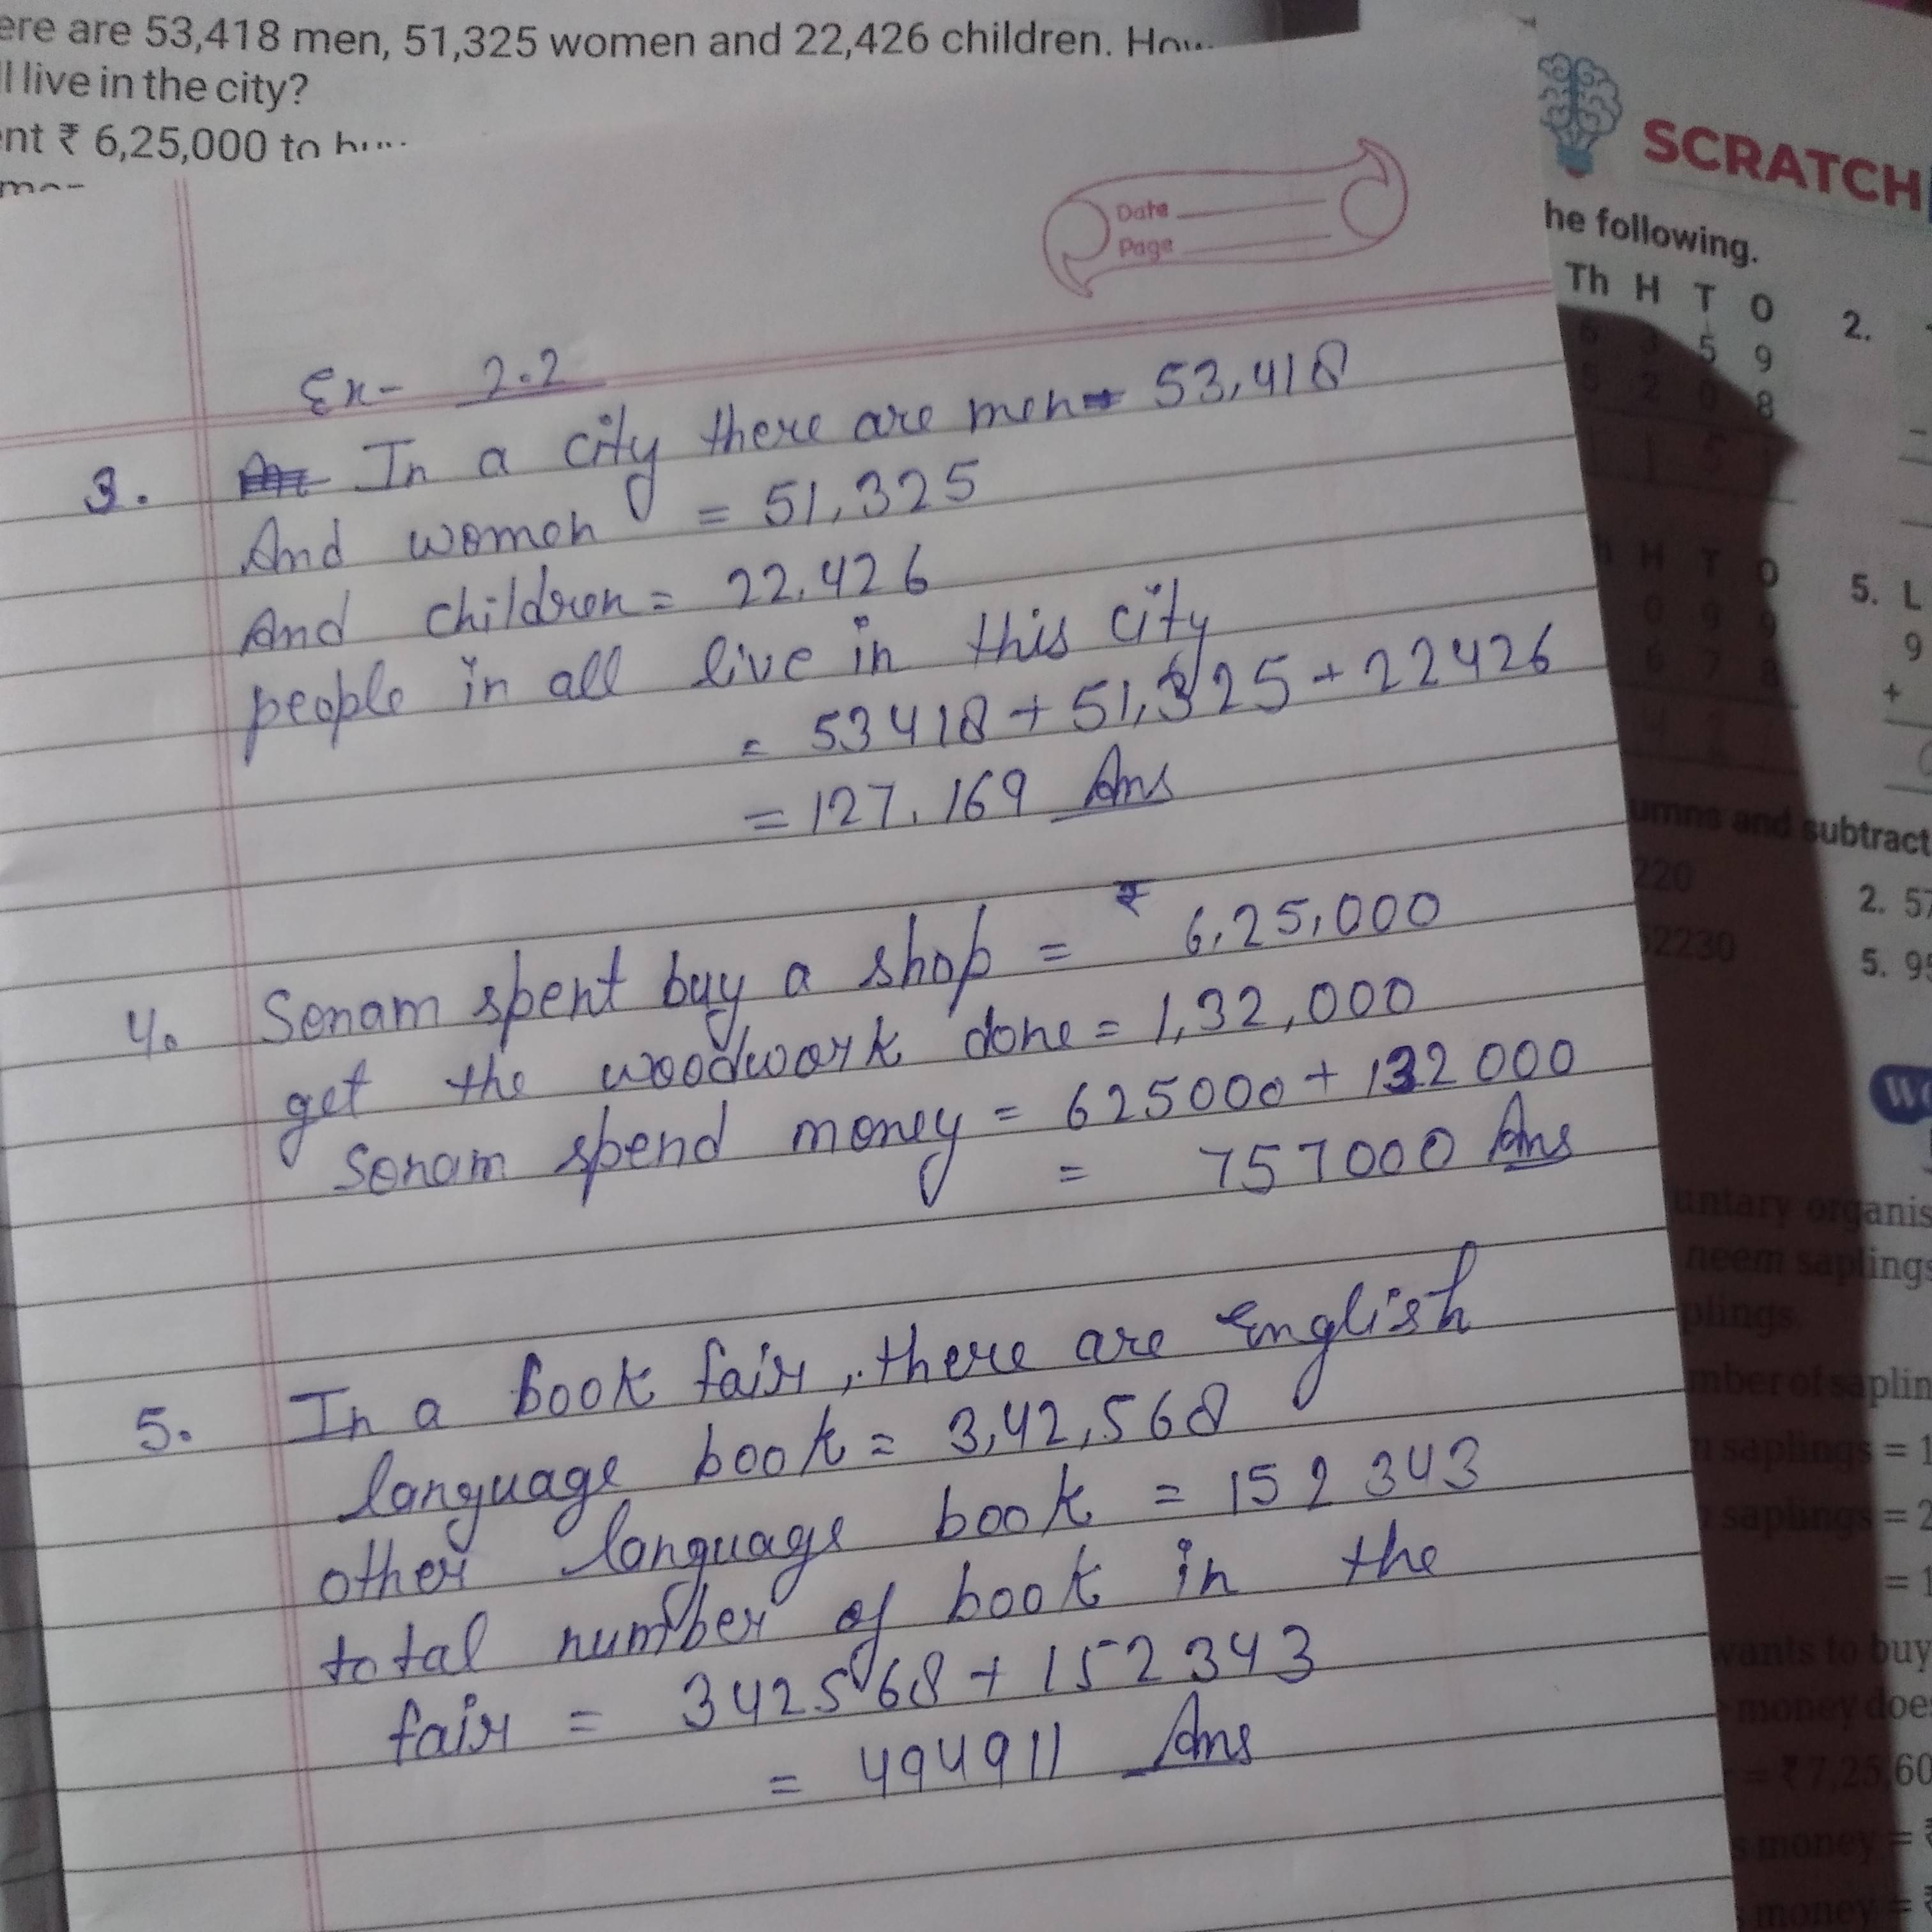 ere are 53,418 men, 51,325 women and 22,426 children.
ll live in the city?
ent ₹ 6,25,000 to
Date
Page
Ex- 2.2
3. In a city there are men 53,418
And women = 51,325
And children = 22,426
people in all live in this city
= 53418 + 51,325 + 22426
= 127,169 Ans
4. Sonam spent buy a shop = ₹ 6,25,000
get the woodwork done = 1,32,000
Sonam spend money = 625000 + 132000
= 757000 Ans
5. In a book fair, there are English
language book = 3,42,568
other language book = 152343
total number of book in the
fair = 342568 + 152343
= 494911 Ans
SCRATCH
he following.
Th H T O
2.
5 9
5 2 0 8
H T O
5. L
0 9 9
9
6 7 8
+
umns and subtract
220
2. 57
52230
5. 95
untary organis
neem saplings
plings.
mber of saplin
saplings = 1
saplings = 2
= 1
wants to buy
money doe
= ₹ 7,25,60
s money = ₹
money = ₹